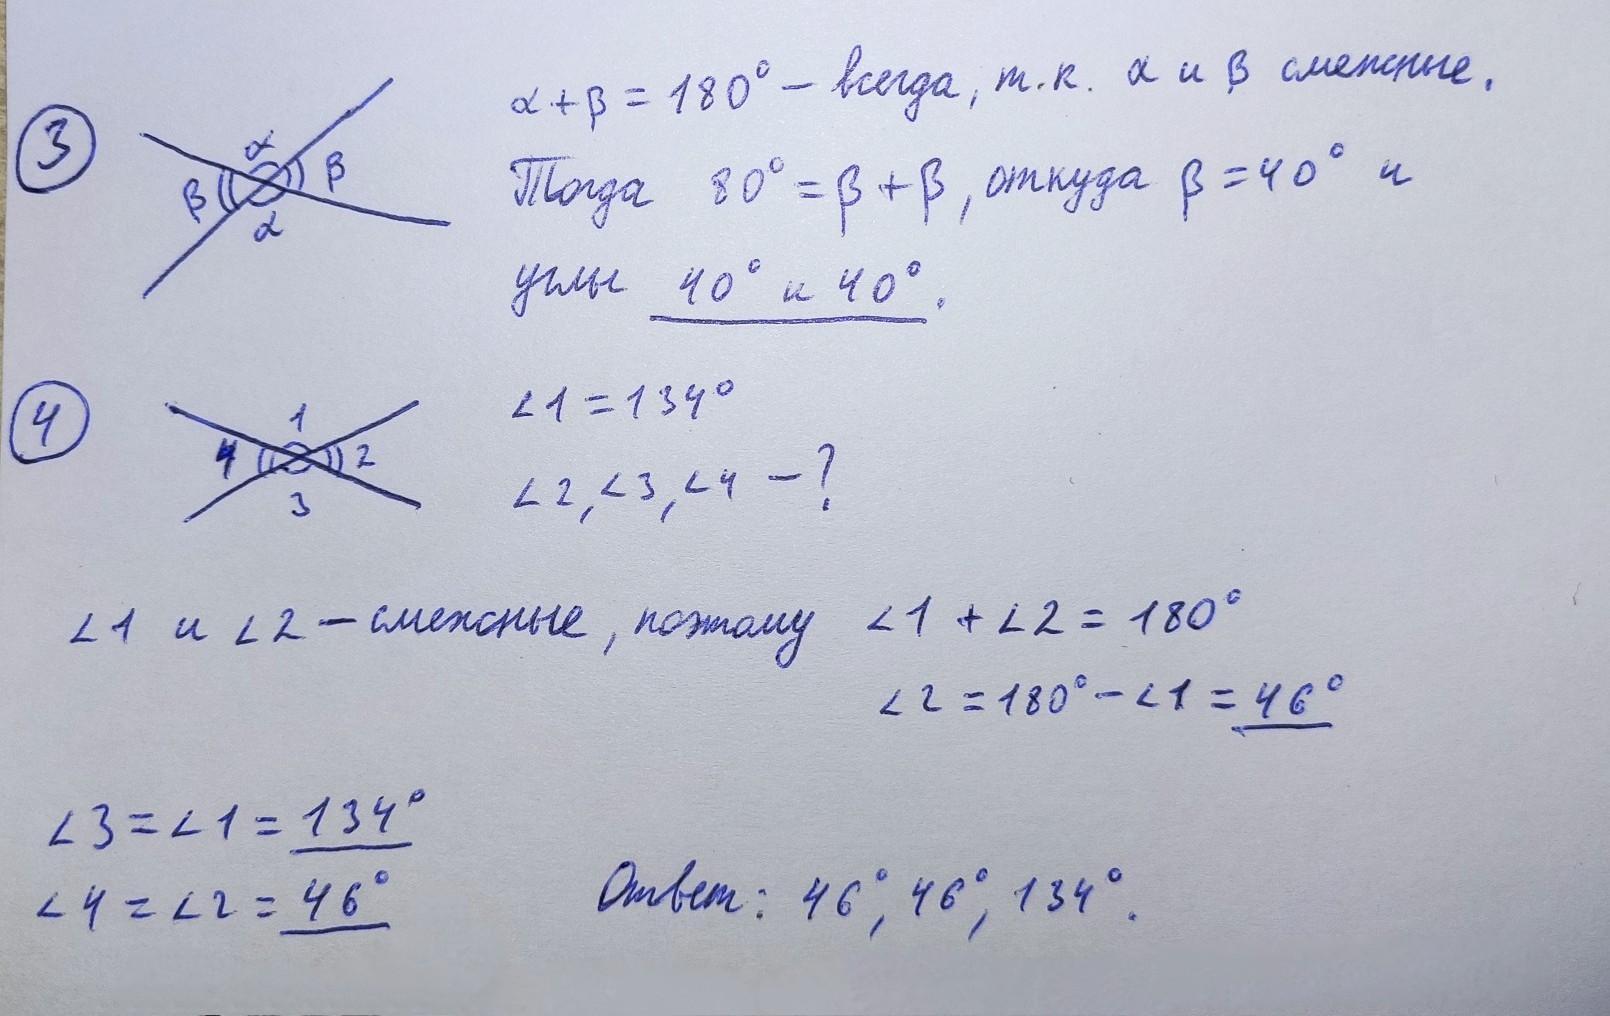 3
α + β = 180° – всегда, т.к. α и β смежные.
α
β
β
α
Тогда 80° = β + β, откуда β = 40° и
углы 40° и 40°.
4
1
4
2
3
∠1 = 134°
∠2, ∠3, ∠4 – ?
∠1 и ∠2 – смежные, поэтому ∠1 + ∠2 = 180°
∠2 = 180° – ∠1 = 46°
∠3 = ∠1 = 134°
∠4 = ∠2 = 46°
Ответ: 46°, 46°, 134°.